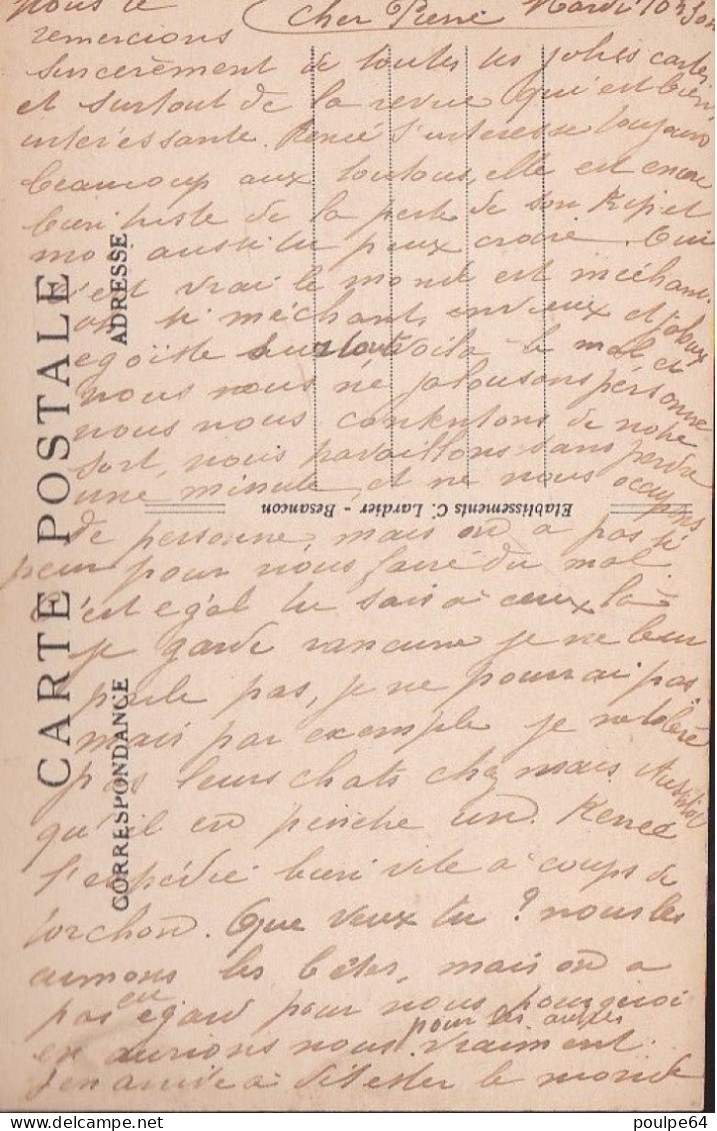 Nous te Cher René Mardi 10h soir
remercions
sincèrement de toutes tes jolies cartes
et surtout de la revue qui est bien
intéressante. Renée s'intéresse toujours
beaucoup aux toutous, elle est encore
bien triste de la perte de son Kepi et
moi aussi tu peux croire. Oui
c'est vrai le monde est méchant.
on si méchant, envieux et jaloux
egoiste surtout voila le mal et
nous nous ne jalousons personne
nous nous contentons de notre
sort, nous travaillons sans perdre
une minute, et ne nous occupons
de personne, mais on a pas si
peur pour nous faire du mal
c'est egal tu sais à ceux là
je garde rancune je ne leur
parle pas, je ne pourrai pas
mais par exemple je ne tolère
pas leurs chats chez mais Aussitot
qu'il en penche un. Renée
l'expédie bien vite à coups de
torchon. Que veux tu ? nous les
aimons les bêtes, mais on a
pas eu égard pour nous pourquoi
en aurions nous pour les autres vraiment.
J'en arrive à détester le monde
CARTE POSTALE
CORRESPONDANCE
ADRESSE
Etablissements C. Lardier - Besançon
delcampe.net
poulpe64